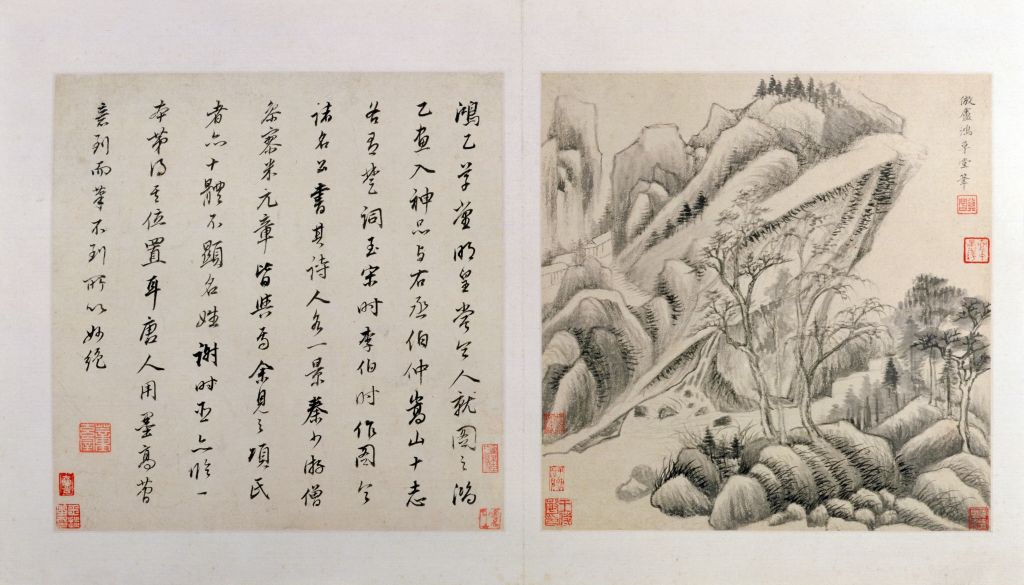 倣盧鴻草堂筆
鴻乙草堂明皇嘗令人就圖之鴻
乙畫入神品与右丞伯仲嵩山十志
有楚詞至宋時李伯時作圖令
諸名公書其詩人各一景秦少游僧
參寥米元章皆與焉余見之項氏
者亦十體不顯名姓謝時臣亦臨一
本第得其位置耳唐人用墨高
意到而筆不到所以妙絕